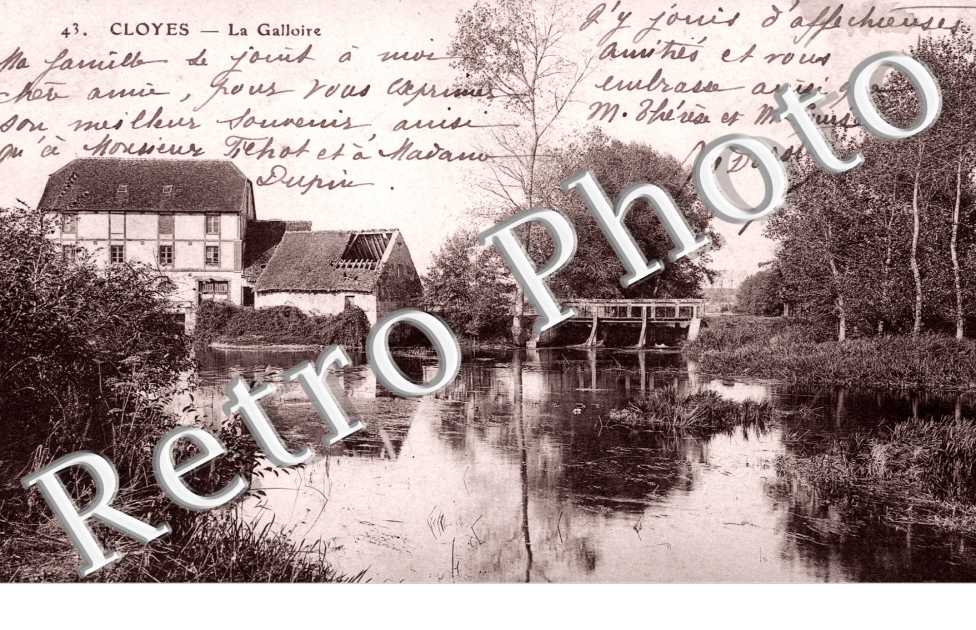 43. CLOYES — La Galloire
Ma famille se joint à moi
cher amie, pour vous exprimer
son meilleur souvenir ainsi
qu'à Monsieur Pichot et à Madame
Dupin.
J'y joins d'affectueuses
amitiés et vous
embrasse ainsi que
M. Thérèse et
Retro Photo